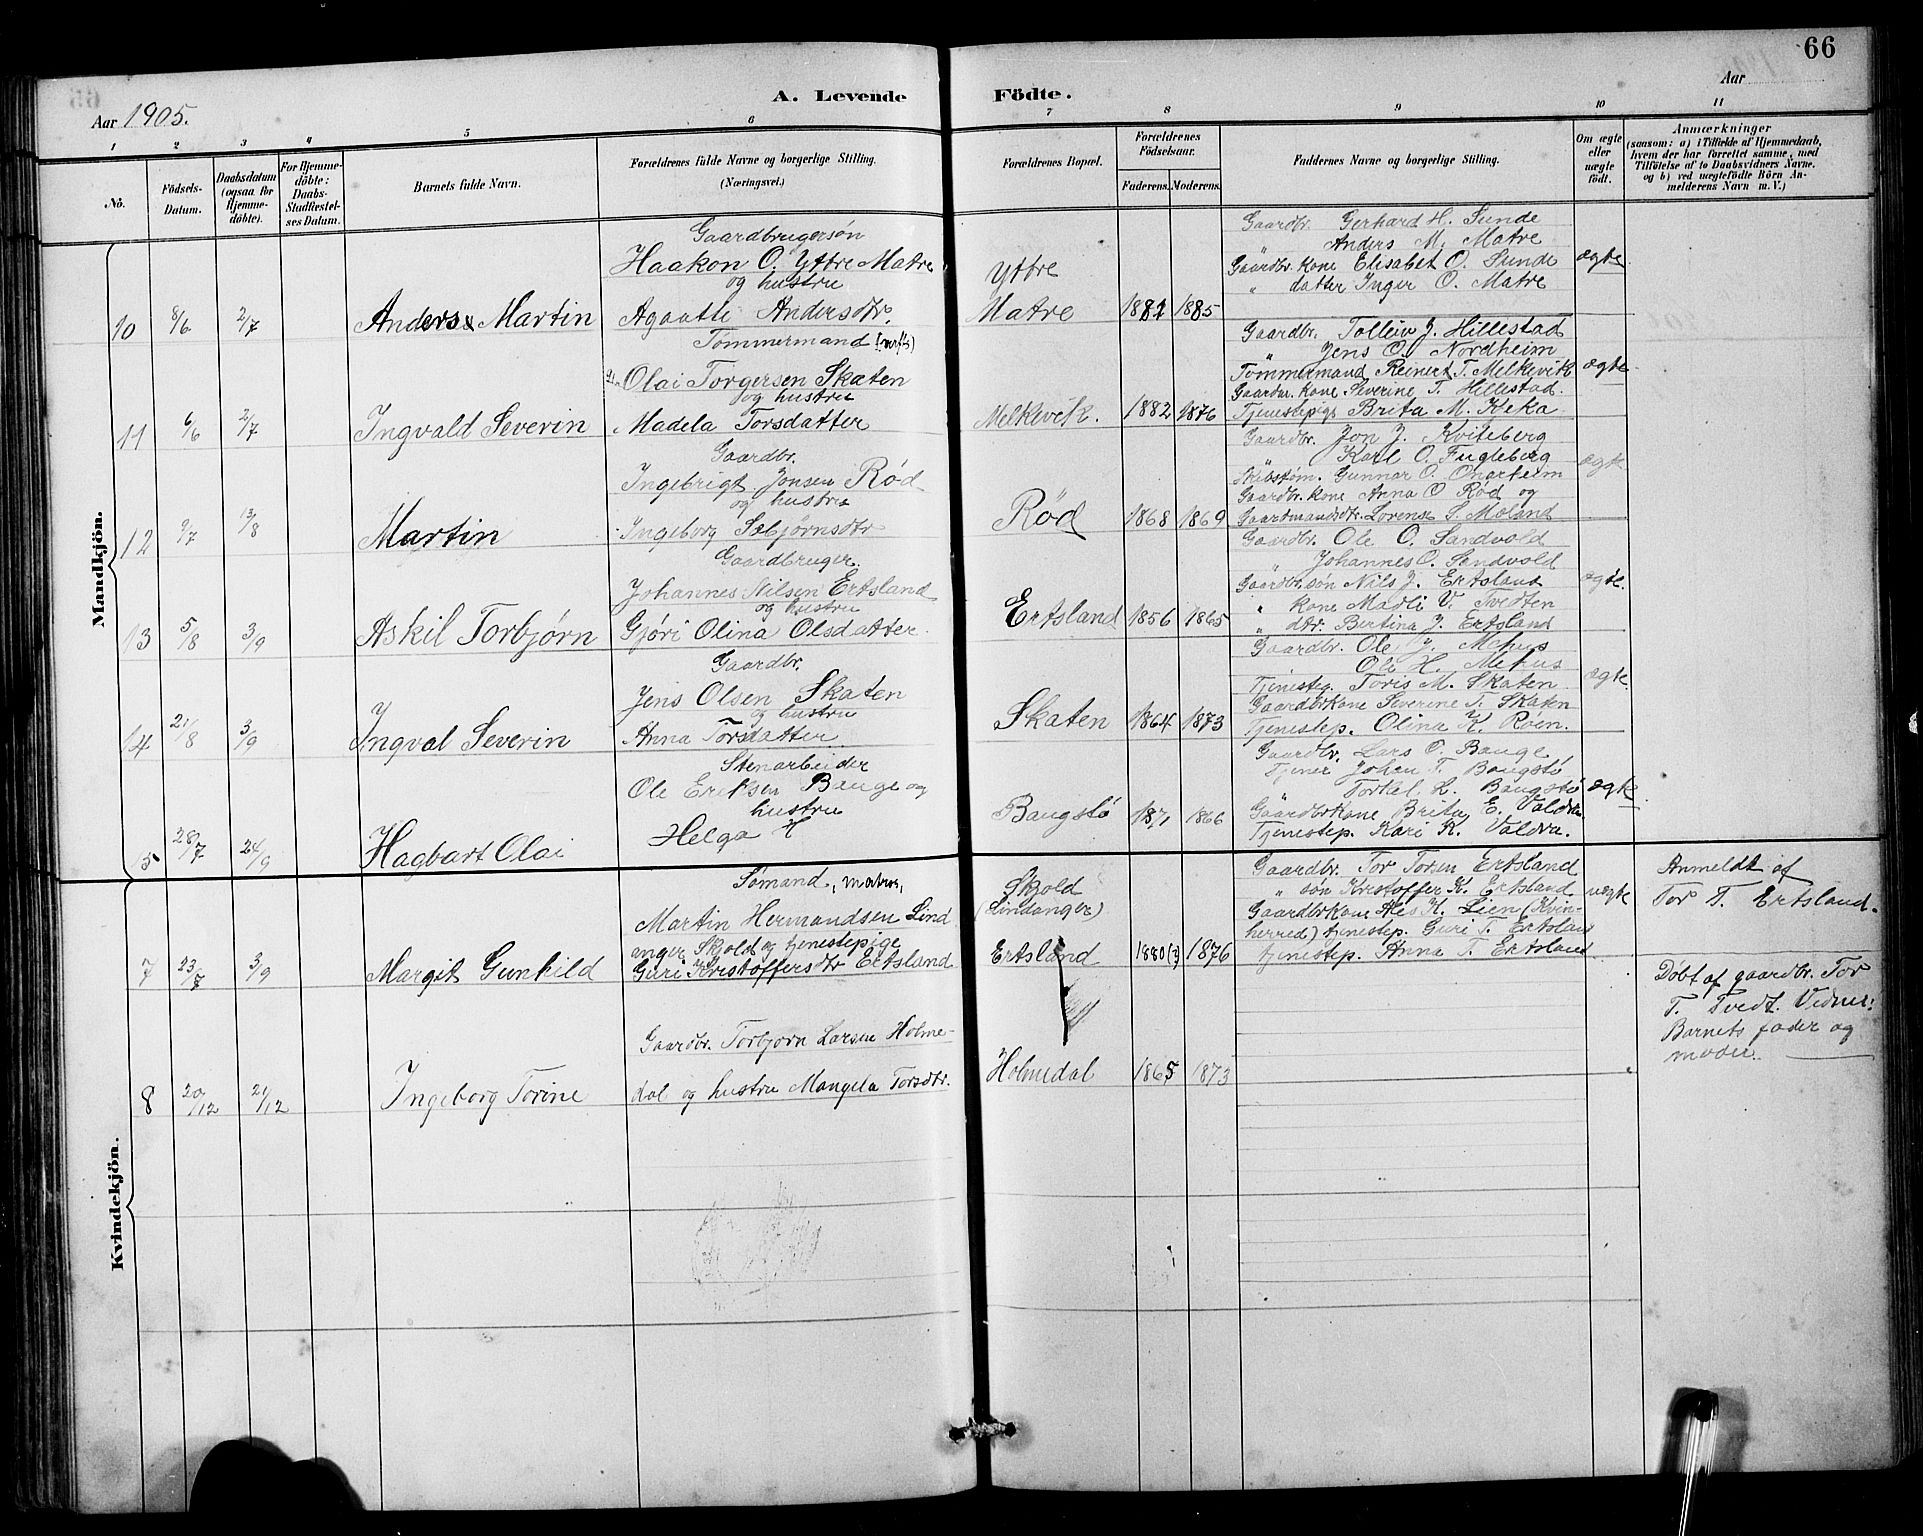 66
A. Levende Födte.
Aar 1905.
Aar
1 2 3 4 5 6 7 8 9 10 11
No.
Födsels-Datum.
Daabsdatum (ogsaa for Hjemme-döbte).
For Hjemme-döbte: Daabs-Stadfæstel-ses Datum.
Barnets fulde Navn.
Forældrenes fulde Navne og borgerlige Stilling.
(Næringsvei.)
Forældrenes Bopæl.
Forældrenes Födselsaar.
Faderens. Moderens.
Faddernes Navne og borgerlige Stilling.
Om ægte eller uægte födt.
Anmærkninger
(saasom: a) i Tilfælde af Hjemmedaab, hvem der har forrettet samme, med Tilföielse af to Daabsvidners Navne. og b) ved uægtefödte Börn An-melderens Navn m. V.)
Mandkjön.
10 8/6 2/7 Anders Martin
Gaardbrugersøn
Haakon O. Yttre Matre
og hustru
Agaate Andersdtr.
Yttre
Matre 1882 1885
Gaardbr. Gerhard H. Sunde
" Anders M. Matre
Gaardbr. kone Elisabet O. Sunde
" datter Inger O. Matre
ægte
11 6/6 2/7 Ingvald Severin
Tømmermand
Olai Torgersen Skaten
og hustru
Madela Torsdatter
Melkevik. 1882 1876
Gaardbr. Tollein J. Hillestad
" Jens O. Nordheim
Tømmermand Reinert T. Melkevik
Gaardbr. kone Severine T. Hillestad.
Tjenestepige Brita M. Keka
ægte
12 9/7 13/8 Martin
Gaardbr.
Ingebrigt Jonsen Rød
og hustru
Ingeborg Sebjørnsdtr
Rød 1868 1869
Gaardbr. Jon J. Kviteberg
" Karl O. Fugleberg
Gunnar O. Onarheim
Gaardbr. kone Anna O Rød og
Gaardmandsdtr. Lorense S. Moland
ægte
13 5/8 3/9 Askil Torbjørn
Gaardbruger.
Johannes Nilsen Ertsland
og hustru
Gjøri Olina Olsdatter
Ertsland 1856 1865
Gaardbr. Ole O. Sandvold
" Johannes O. Sandvold
Gaardbr. søn Nils J. Ertsland
" kone Madli V. Tvedten
" dtr. Bertina J. Ertsland
ægte.
14 21/8 3/9 Ingval Severin
Gaardbr.
Jens Olsen Skaten
og hustru
Anna Torsdatter
Skaten 1864 1873
Gaardbr. Ole J. Mehus
Ole H. Mehus
Tjenestep. Toris M. Skaten
Gaardbrkone Severine T. Skaten
Tjenestep. Olina K. Røen.
ægte.
15 28/7 24/9 Hagbart Olai
Stenarbeider
Ole Eriksen Bauge og
hustru
Helga H
Baugstø 1871 1866
Gaardbr. Lars O. Bauge
Tjener Johan T. Baugstø
" Torkel L. Baugstø
Gaardbrkone Brita E. Valdra
Tjenestep. Kari K. Valdra.
ægte
Kvindekjön.
7 23/7 3/9 Margit Gunhild
Sømand, matros,
Martin Hermandsen Lind
anger Skjold og tjenestepige
Guri Kristoffersdtr Ertsland
Skjold
(Lindanger)
Ertsland 1880(?) 1876
Gaardbr. Tor Torsen Ertsland
" søn Kristoffer K. Ertsland
Gaardbrkone Aes H. Lien (Kvin-
herred) tjenestep. Guri T. Ertsland
tjenestep. Anna T. Ertsland
uægte
Anmeldt af
Tor T. Ertsland.
8 20/12 21/12 Ingeborg Torine
Gaardbr. Torbjørn Larsen Holme-
dal og hustru Mangela Torsdtr.
Holmedal 1865 1873
Døbt af gaardbr. Tor
T. Tvedt. Vidner:
Barnets fader og
moder.